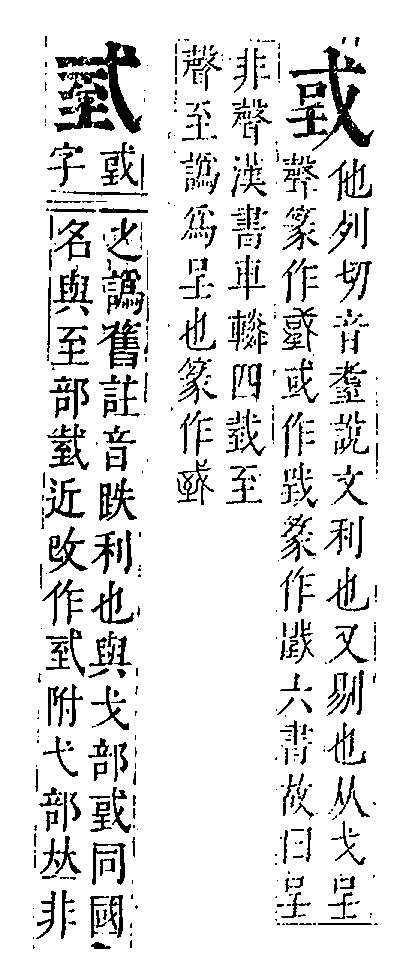 戜
他列切音耋說文利也又剔也从戈呈
聲篆作或作篆作六書故曰呈
非聲漢書車轔四至
聲至譌爲呈也篆作
戜
字
之譌舊註音昳利也與戈部戜同國
名與至部近改作附弋部𠀤非